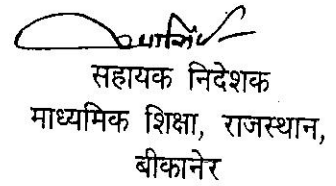 सहायक निदेशक
माध्यमिक शिक्षा, राजस्थान,
बीकानेर